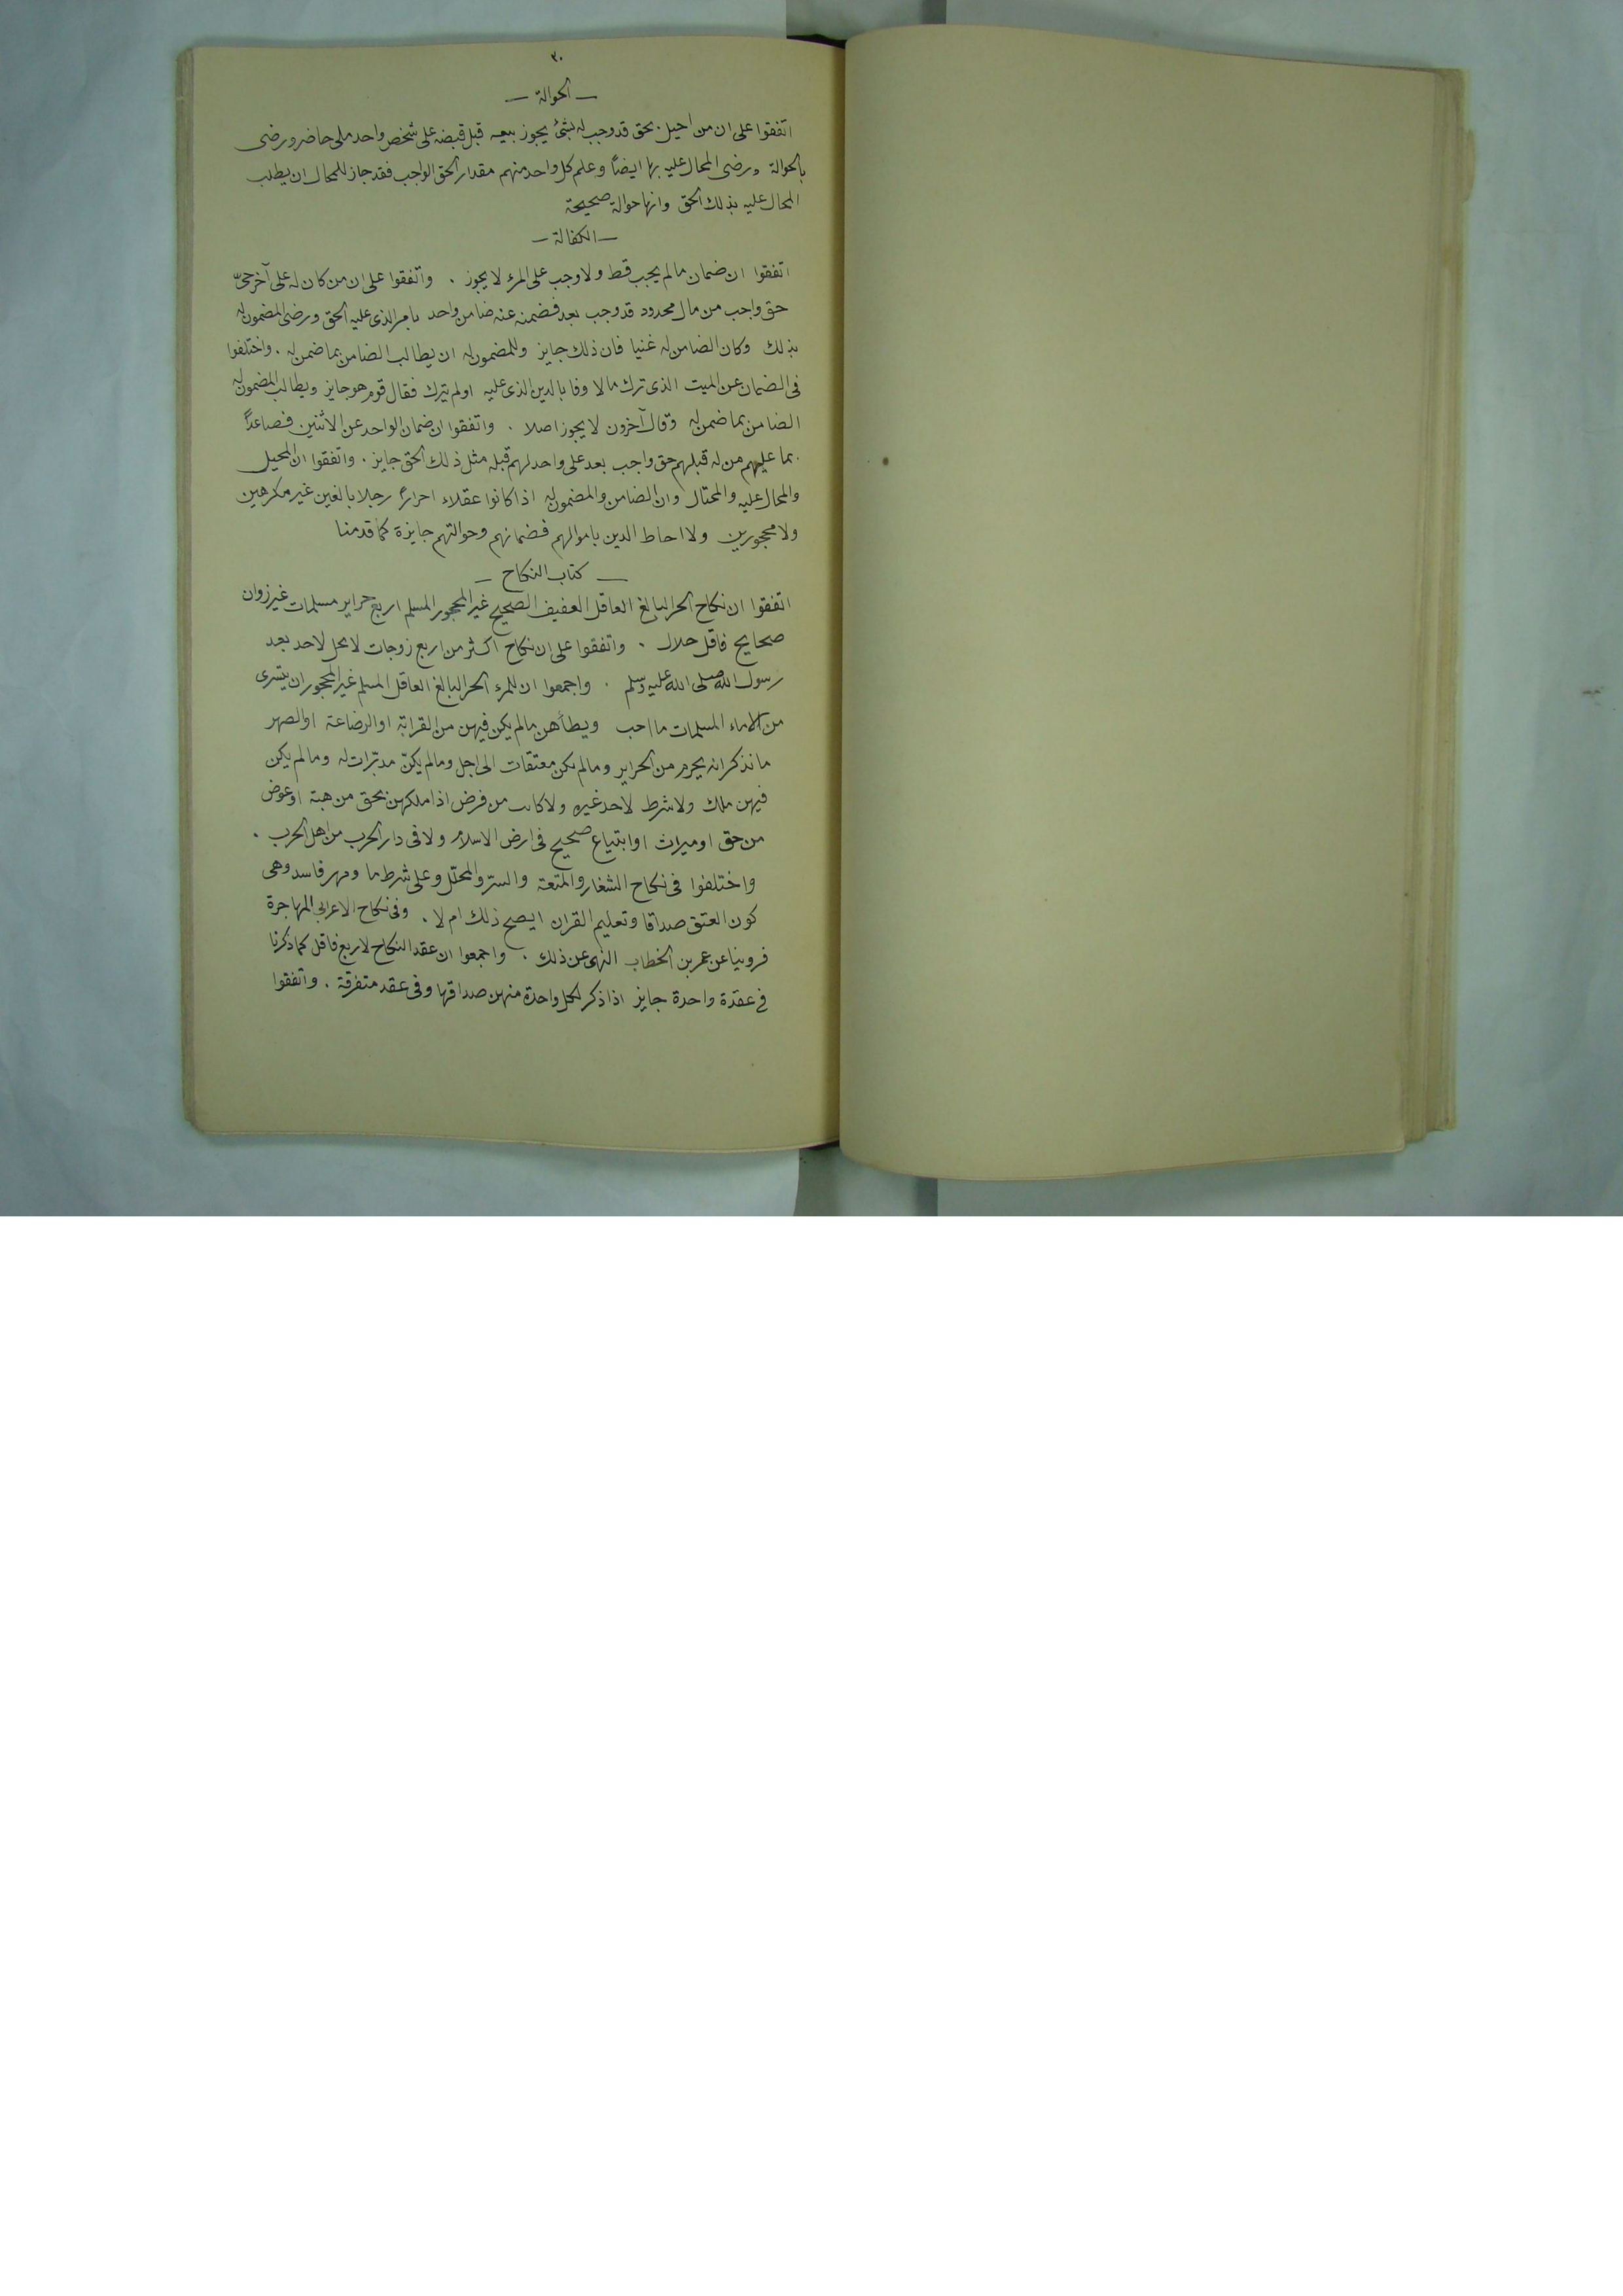 ٣٠
— الحوالة —
اتفقوا على ان من احيل بحق قد وجب له بشئ يجوز بيعه قبل قبضه على شخص واحد ملى حاضر ورضى
بالحوالة ورضى المحال عليه بها ايضاً وعلم كل واحد منهم مقدار الحق الواجب فقد جاز للمحال ان يطلب
المحال عليه بذلك الحق وانها حوالة صحيحة
— الكفالة —
اتفقوا ان ضمان مالم يجب قط ولا وجب على المرء لا يجوز . واتفقوا على ان من كان له على آخر حىّ
حق واجب من مال محدود قد وجب بعد فضمنه عنه ضامن واحد بامر الذى عليه الحق ورضى المضمون له
بذلك وكان الضامن له غنيا فان ذلك جايز وللمضمون له ان يطالب الضامن بما ضمن له . واختلفوا
فى الضمان عن الميت الذى ترك مالا وفا بالدين الذى عليه اولم يترك فقال قوم هو جايز ويطالب المضمون له
الضامن بما ضمن له وقال آخرون لا يجوز اصلا . واتفقوا ان ضمان الواحد عن الاثنين فصاعداً
بما عليهم من له قبلهم حق واجب بعد على واحد لهم قبله مثل ذلك الحق جايز . واتفقوا ان المحيل
والمحال عليه والمحتال وان الضامن والمضمون له اذا كانوا عقلاء احراراً رجلا بالغين غير مكرهين
ولا محجورين ولا احاط الدين باموالهم فضمانهم وحوالتهم جايزة كما قدمنا
— كتاب النكاح —
اتفقوا ان نكاح الحر البالغ العاقل العفيف الصحيح غير المحجور المسلم اربع حراير مسلمات غير زوان
صحايح فاقل حلال . واتفقوا على ان نكاح اكثر من اربع زوجات لا يحل لاحد بعد
رسول الله صلى الله عليه وسلم . واجمعوا ان للمرء الحر البالغ العاقل المسلم غير المحجور ان يتسرى
من الاماء المسلمات ما احب ويطأهن مالم يكن فيهن من القرابة او الرضاعة او الصهر
ما نذكر انه يحرم من الحراير ومالم يكن معتقات الى اجل ومالم يكنّ مدبّرات له ومالم يكن
فيهن ملك ولا شرط لاحد غيره ولا كانت من فرض اذا ملكهن بحق من هبة او عوض
من حق او ميراث او ابتياع صحيح فى ارض الاسلام ولا فى دار الحرب من اهل الحرب .
واختلفوا فى نكاح الشغار والمتعة والسرّ والمحلّل وعلى شرط ما ومهر فاسد وهى
كون العتق صداقا وتعليم القران ايصح ذلك ام لا . وفى نكاح الاعرابى المهاجرة
فروينا عن عمر بن الخطاب النهى عن ذلك . واجمعوا ان عقد النكاح لاربع فاقل كما ذكرنا
فى عقدة واحدة جايز اذا ذكر لكل واحدة منهن صداقها وفى عقد متفرقة . واتفقوا